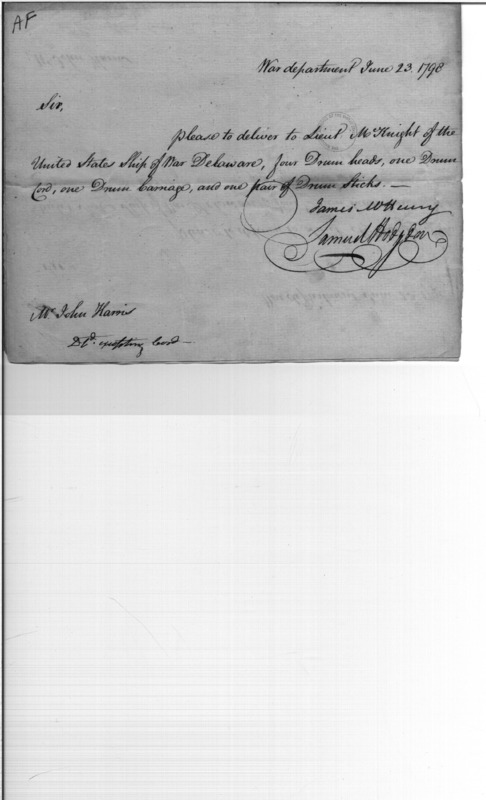 AF
War department June 23. 1798
Sir,
please to deliver to Lieut McKnight of the
United States Ship of War Delaware, four Drum heads, one Drum
Cord, one Drum Carriage, and one pair of Drum Sticks. —
James McHenry
Samuel Hodgdon
Mr John Harris
Dd. excepting Cord —